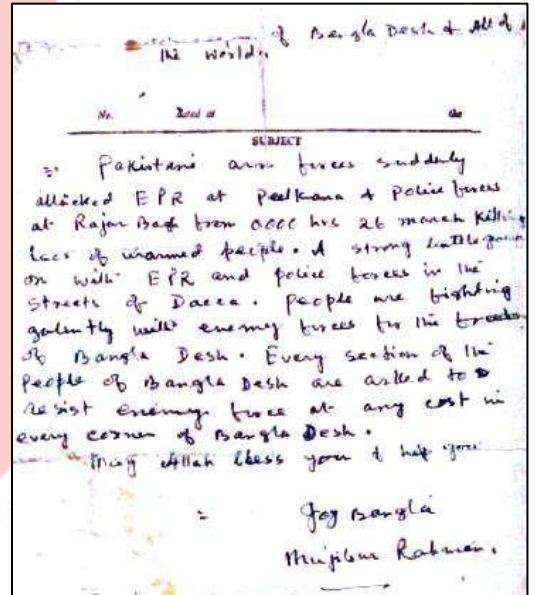 of Bangla Desh & All of
the world.
No. Dated at the
SUBJECT
Pakistani arm forces suddenly
attacked EPR at Peelkana & Police forces
at Rajar Bag from 0000 hrs 26 march killing
lacs of unarmed people. A strong battle going
on with EPR and police forces in the
streets of Dacca. people are fighting
galantly with enemy forces for the freedom
of Bangla Desh. Every section of the
people of Bangla Desh are asked to
resist enemy force at any cost in
every corner of Bangla Desh.
May Allah bless you & help you
Joy Bangla
Mujibur Rahman.